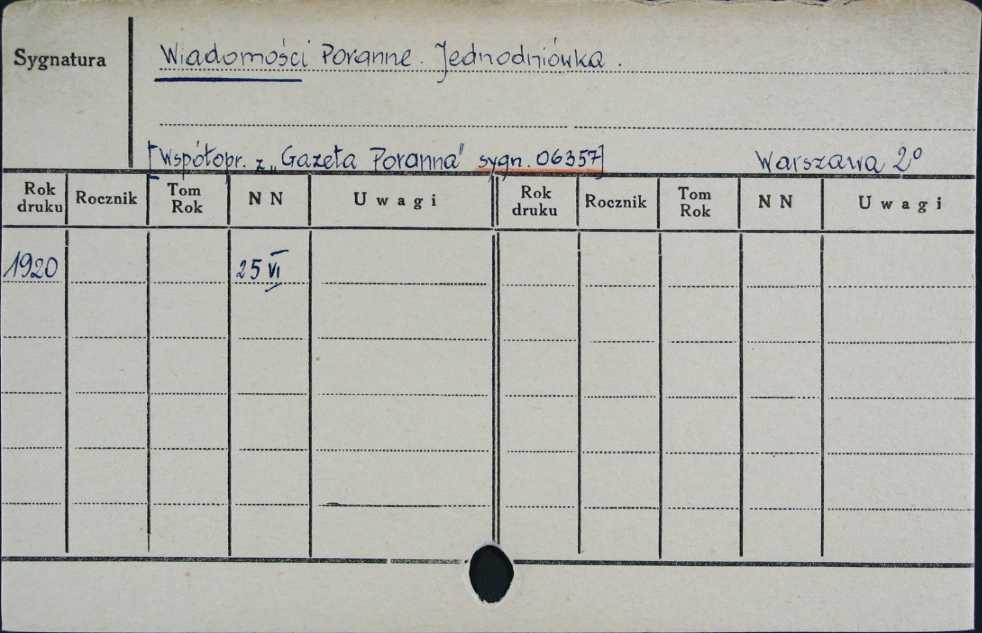 Sygnatura
Wiadomości Poranne. Jednodniówka.
[Współopr. z „Gazeta Poranna" sygn. 06357] Warszawa 2°
Rok druku Rocznik Tom Rok N N Uwagi Rok druku Rocznik Tom Rok N N Uwagi
1920 25 VI